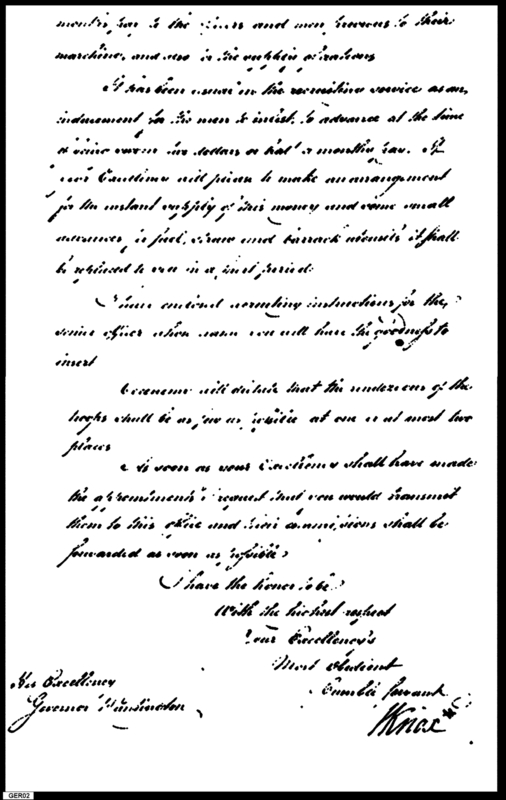 months pay to the officers and men previous to their
marching, and also in the supplies of rations
It has been usual in the recruiting service as an
inducement for the men to inlist, to advance at the time
of being sworn two dollars or half a months pay. If
your Excellency will please to make an arrangement
for the instant supply of this money and some small
allowances, of fuel, straw and barrack utensils it shall
be replaced to you in a short period.
I have enclosed recruiting instructions for the
senior officer whose name you will have the goodness to
insert
Economy will dictate that the rendezvous of the
troops shall be as few as possible at one or at most two
places
As soon as your Excellency shall have made
the appointments I request that you would transmit
them to this office and their commissions shall be
forwarded as soon as possible
I have the honor to be
With the highest respect
Your Excellency's
Most Obedient
Humble Servant
HKnox
His Excellency
Governor Huntington
GER02